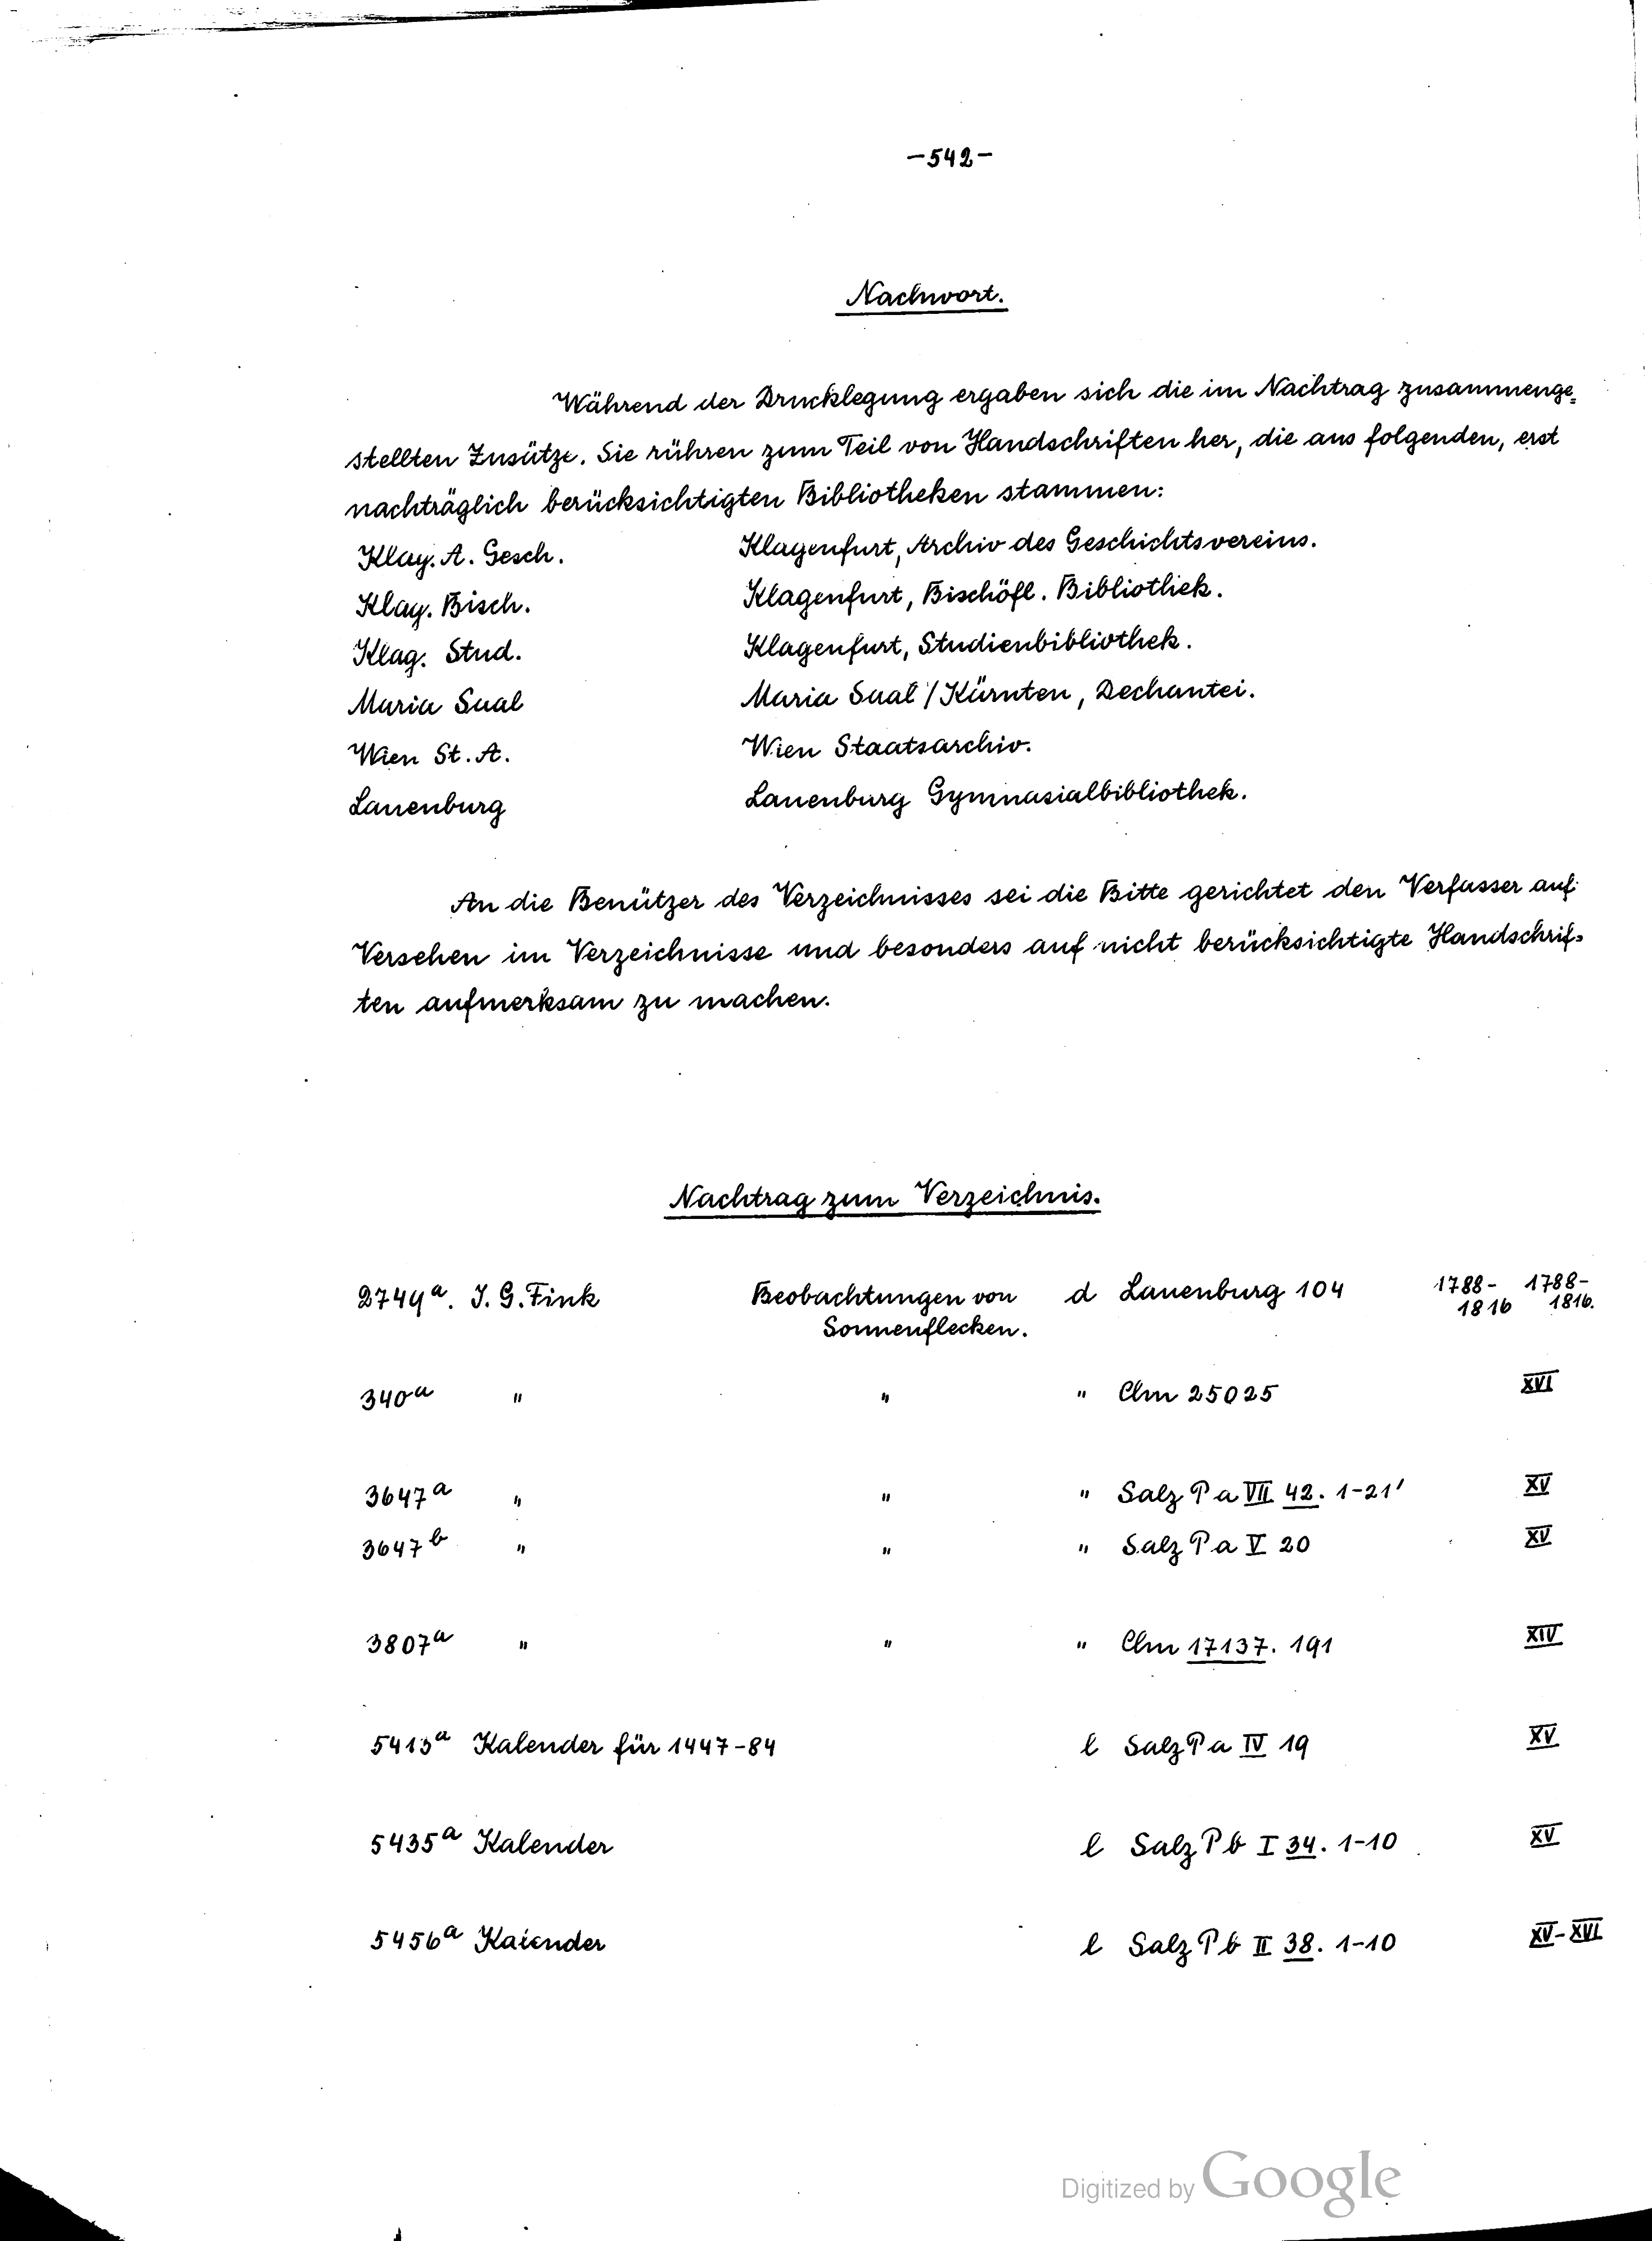 -542-
Nachwort.
Während der Drucklegung ergaben sich die im Nachtrag zusammenge-
stellten Zusätze. Sie rühren zum Teil von Handschriften her, die aus folgenden, erst
nachträglich berücksichtigten Bibliotheken stammen:
Klag. A. Gesch. Klagenfurt, Archiv des Geschichtsvereins.
Klag. Bisch. Klagenfurt, Bischöfl. Bibliothek.
Klag. Stud. Klagenfurt, Studienbibliothek.
Maria Saal Maria Saal / Kärnten, Dechantei.
Wien St. A. Wien Staatsarchiv.
Lauenburg Lauenburg Gymnasialbibliothek.
An die Benützer des Verzeichnisses sei die Bitte gerichtet den Verfasser auf
Versehen im Verzeichnisse und besonders auf nicht berücksichtigte Handschrif-
ten aufmerksam zu machen.
Nachtrag zum Verzeichnis.
2749a. J. G. Fink Beobachtungen von d Lauenburg 104 1788- 1788-
Sonnenflecken. 1816 1816.
340a " " " Clm 25025 XVI
3647a " " " Salz P a VII 42. 1-21' XV
3647b " " " Salz P a V 20 XV
3807a " " " Clm 17137. 191 XIV
5413a Kalender für 1447-84 l Salz P a IV 19 XV
5435a Kalender l Salz P b I 34. 1-10 XV
5456a Kalender l Salz P b II 38. 1-10 XV-XVI
Digitized by Google